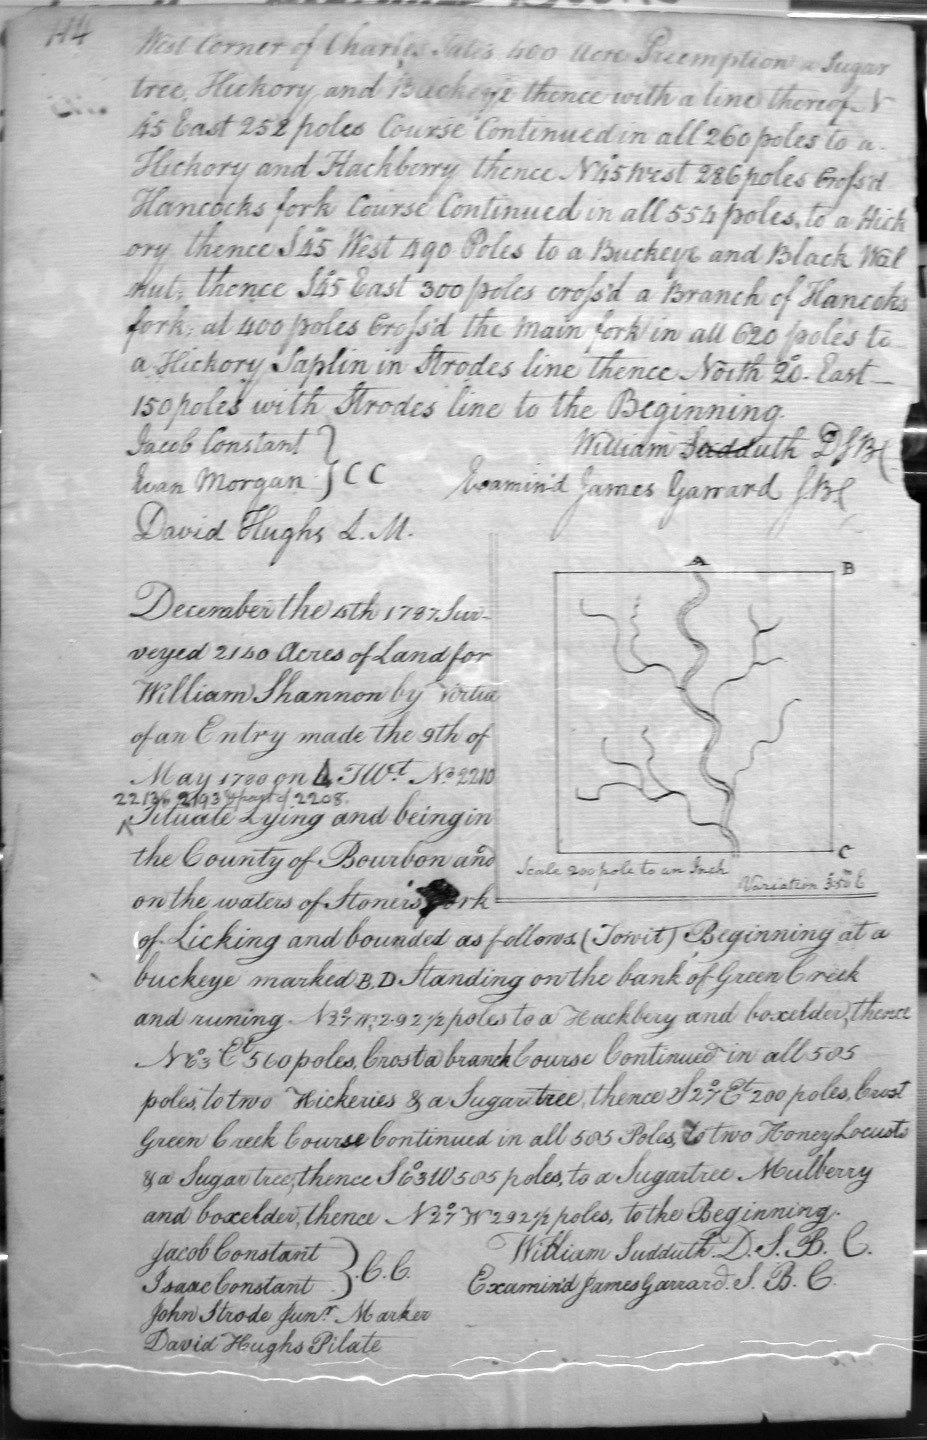 114
West Corner of Charles Tates 400 Acre Preemption a Sugar
tree, Hickory and Buckeye thence with a line thereof N
45 East 252 poles Course Continued in all 260 poles to a
Hickory and Hackberry thence N 45 West 286 poles Cross'd
Hancocks fork Course Continued in all 554 poles, to a Hick
ory thence S 45 West 490 Poles to a Buckeye and Black Wal
nut; thence S 45 East 300 poles cross'd a Branch of Hancocks
fork; at 400 poles Cross'd the main fork in all 620 poles to
a Hickory Saplin in Strodes line thence North 20 East
150 poles with Strodes line to the Beginning.
Jacob Constant
Evan Morgan } C C
David Hughs L. M.
William Sudduth D S B C
Examin'd James Garrard S B C
A
B
C
Scale 200 pole to an Inch
Variation 3°50m E
December the 4th 1787 Sur-
veyed 2140 Acres of Land for
William Shannon by Virtue
of an Entry made the 9th of
May 1780 on 4 T Wt. No 2210
2213 2193 & part of 2208
^ Situate Lying and being in
the County of Bourbon and
on the waters of Stoners fork
of Licking and bounded as follows (Towit) Beginning at a
buckeye marked B, D Standing on the bank of Green Creek
and runing N 27° W, 292 1/2 poles to a Hackbery and boxelder, thence
N 63° Et 560 poles, Crost a branch Course Continued in all 585
poles, to two Hickeries & a Sugar tree, thence S 27° Et 200 poles, Crost
Green Creek Course Continued in all 585 Poles, to two Honey Locusts
& a Sugar tree; thence S 63° W 585 poles, to a Sugartree Mulberry
and boxelder, thence N 27° W 292 1/2 poles, to the Beginning.
Jacob Constant
Isaac Constant } C.C.
John Strode Junr. Marker
David Hughs Pilate
William Sudduth. D. S. B. C.
Examin'd James Garrard. S. B. C.